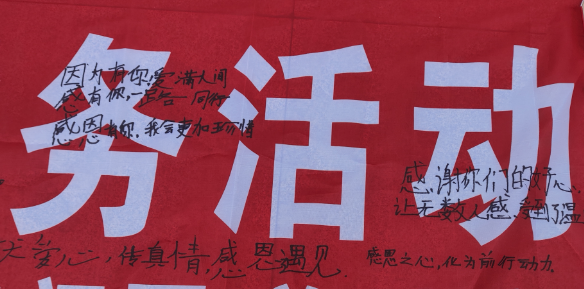 务活动
因为有你,爱满人间
感有你,一路 同行
感恩有你,我会更加珍惜
感谢你们的好心
让无数人感受到了温
天爱心,传真情,感恩遇见.
感恩之心,化为前行动力.